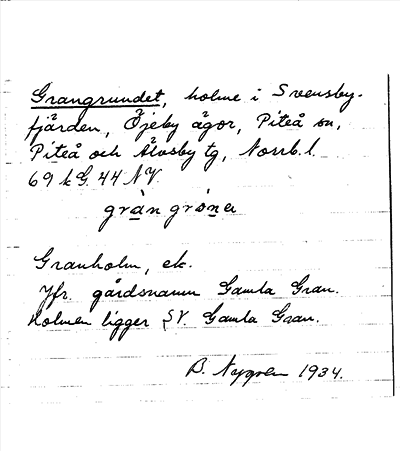 Grangrundet, holme i Svensby-
fjärden, Öjeby ägor, Piteå sn,
Piteå och Älvsby tg, Norrb. l.
69 k G. 44 NV
Granholm, ek.
Jfr. gårdsnamn Gamla Gran.
Holmen ligger SV. Gamla Gran.
B. Nygren 1934.